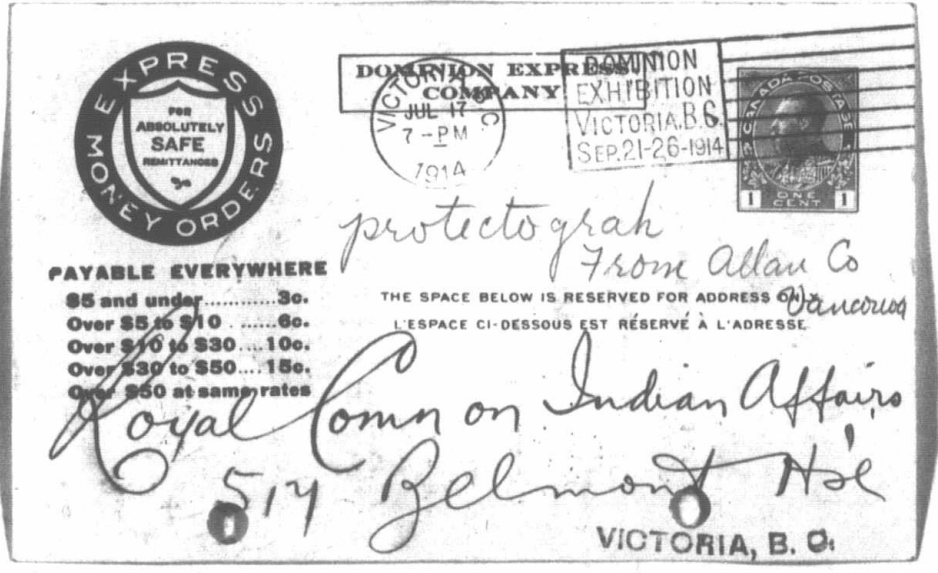 EXPRESS MONEY ORDERS
FOR
ABSOLUTELY
SAFE
REMITTANCES
PAYABLE EVERYWHERE
$5 and under............3c.
Over $5 to $10 .......6c.
Over $10 to $30....10c.
Over $30 to $50....15c.
Over $50 at same rates
DOMINION EXPRESS
COMPANY
VICTORIA B.C.
JUL 17
7-PM
1914
DOMINION
EXHIBITION
VICTORIA.B.C.
SEP.21-26-1914
CANADA POSTAGE
1 ONE CENT 1
protectograh
From Allan Co
Vancouver
THE SPACE BELOW IS RESERVED FOR ADDRESS ONLY
L'ESPACE CI-DESSOUS EST RÉSERVÉ À L'ADRESSE
Royal Comn on Indian Affairs
517 Belmont Hse
VICTORIA, B. C.